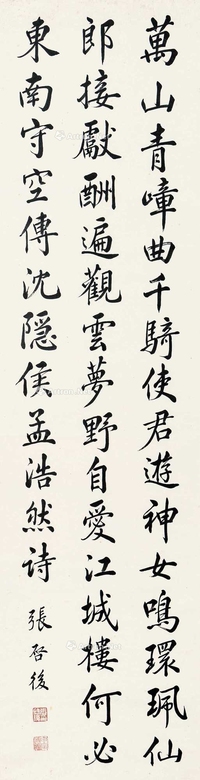 萬山青嶂曲千騎使君遊神女鳴環珮仙
郎接獻酬遍觀雲夢野自愛江城樓何必
東南守空傳沈隱侯孟浩然詩
張啓後